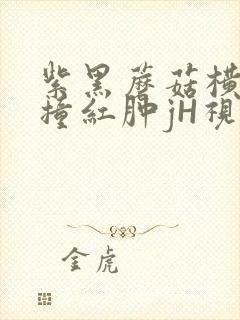 紫黑蘑菇横
撞紅肿jH視
金虎